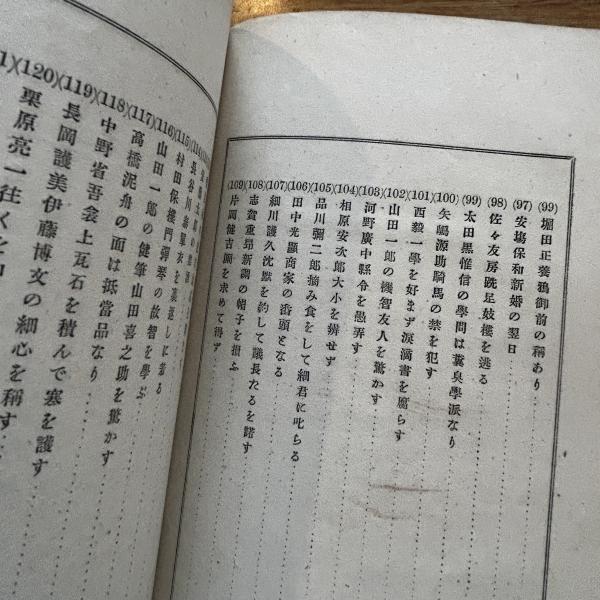 (99) 堀田正養鴉御前の稱あり
(97) 安場保和新婚の翌日
(98) 佐々友房跣足鼓樓を逃る
(99) 太田黒惟信の學問は糞臭學派なり
(100) 矢嶋源助騎馬の禁を犯す
(101) 西毅一學を好まず涙滴書を腐らす
(102) 山田一郎の機智友人を驚かす
(103) 河野廣中縣令を愚弄す
(104) 相原安次郎大小を辨せず
(105) 品川彌二郎摘み食をして細君に叱らる
(106) 田中光顯商家の番頭となる
(107) 細川護久沈默を約して議長たるを諾す
(108) 志賀重昂新調の帽子を損ふ
(109) 片岡健吉
を求めて得ず
村田保樓門彈琴の故智を學ぶ
(116) 山田一郎の健筆山田喜之助を驚かす
(117) 高橋泥舟の面は抵當品なり
(118) 中野省吾
上瓦石を積んで塞を護す
(119) 長岡護美伊藤博文の細心を稱す
(120) 栗原亮一往く